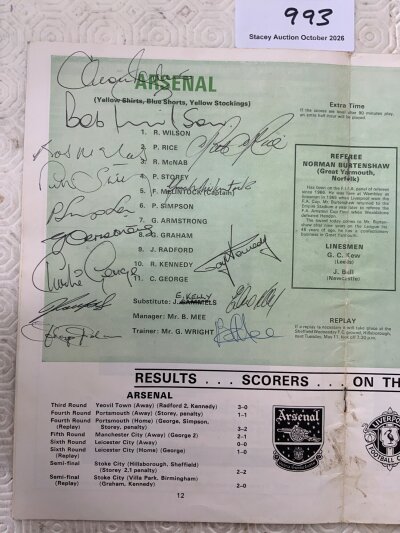 993
Stacey Auction October 2026
ARSENAL
(Yellow Shirts, Blue Shorts, Yellow Stockings)
Bob Wilson
1. R. WILSON
2. P. RICE
3. R. McNAB
4. P. STOREY
5. F. McLINTOCK (Captain)
6. P. SIMPSON
7. G. ARMSTRONG
8. G. GRAHAM
9. J. RADFORD
10. R. KENNEDY
11. C. GEORGE
Substitute: J. SAMMELS
E. KELLY
Manager: Mr. B. MEE
Trainer: Mr. G. WRIGHT
Pat Rice
Bob McNab
Peter Storey
Ray Kennedy
Charlie George
Eddie Kelly
Extra Time
If the scores are level after 90 minutes play,
an extra half hour will be played.
REFEREE
NORMAN BURTENSHAW
(Great Yarmouth,
Norfolk)
LINESMEN
G. C. Kew
(Leeds)
J. Bell
(Newcastle)
REPLAY
If a replay is necessary it will take place at the
Sheffield Wednesday F.C. ground, Hillsborough,
next Tuesday, May 11. Kick off 7.30 p.m.
RESULTS . . . SCORERS . . . ON TH
ARSENAL
Third Round Yeovil Town (Away) (Radford 2, Kennedy) 3-0
Fourth Round Portsmouth (Away) (Storey, penalty) 1-1
Fourth Round (Replay) Portsmouth (Home) (George, Simpson, Storey, penalty) 3-2
Fifth Round Manchester City (Away) (George 2) 2-1
Sixth Round Leicester City (Away) 0-0
Sixth Round (Replay) Leicester City (Home) (George) 1-0
Semi-final Stoke City (Hillsborough, Sheffield) (Storey 2, 1 penalty) 2-2
Semi-final (Replay) Stoke City (Villa Park, Birmingham) (Graham, Kennedy) 2-0
Arsenal
LIVERPOOL
FOOTBALL CLUB
12